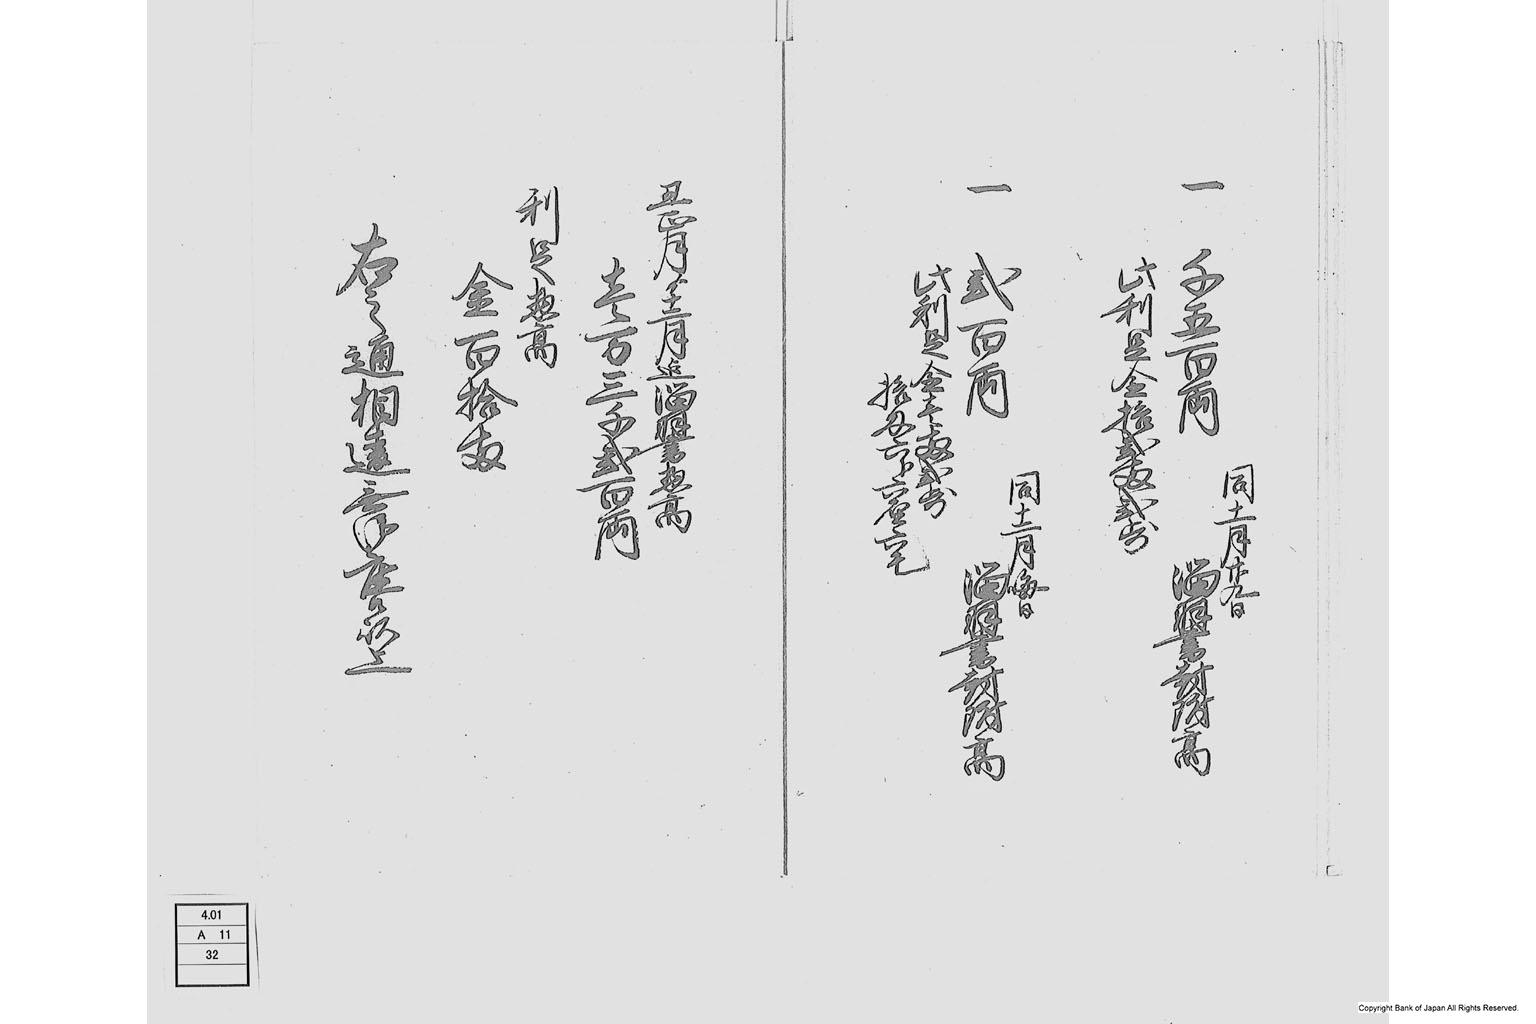 一 千五百両
同十一月廿九日
溜明書封附高
此利足金拾弐両弐分
一 弐百両
同十二月晦日
溜明書封附高
此利足金壱両弐分
拾匁六分六厘六毛
丑正月ゟ十二月迄溜明書惣高
壱万三千弐百両
利足惣高
金百拾両
右之通相違無御座候以上
4.01
A 11
32
Copyright Bank of Japan All Rights Reserved.